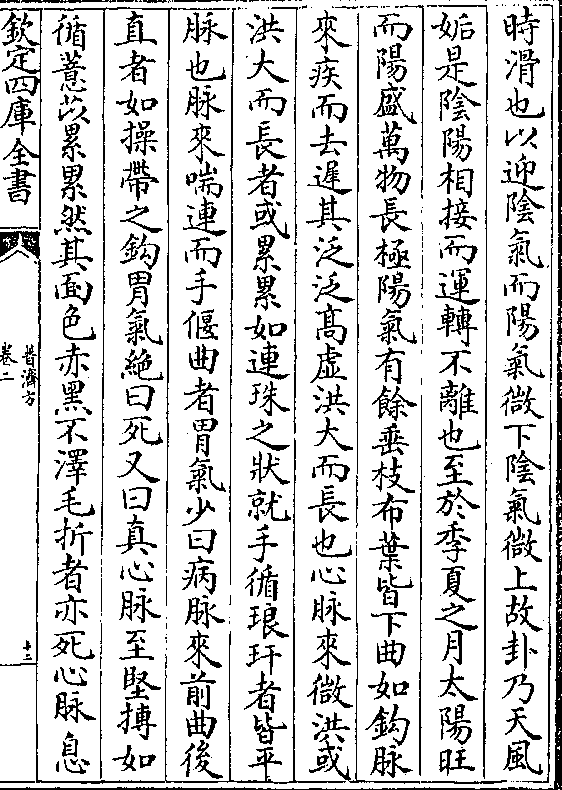 時滑也以迎隂氣而陽氣微下隂氣微上故卦乃天風
姤是陰陽相接而運轉不離也至於季夏之月太陽旺
而陽盛萬物長極陽氣有餘垂枝布葉皆下曲如鈎脉
來疾而去遲其泛泛髙虚洪大而長也心脉來微洪或
洪大而長者或累累如連珠之狀就手循琅玕者皆平
脉也脉來喘連而手偃曲者胃氣少曰病脉來前曲後
直者如操帶之鈎胃氣絶曰死又曰真心脉至堅摶如
循薏苡累累然其面色赤黒不澤毛折者亦死心脉息
欽定四庫全書
普濟方
卷二
十二